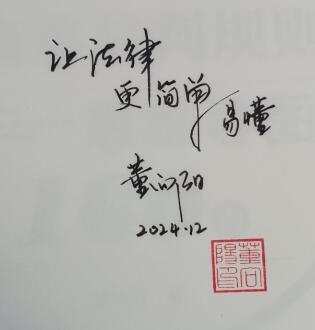 让法律
更简单
易懂
董向阳
2024.12
董向
陽印